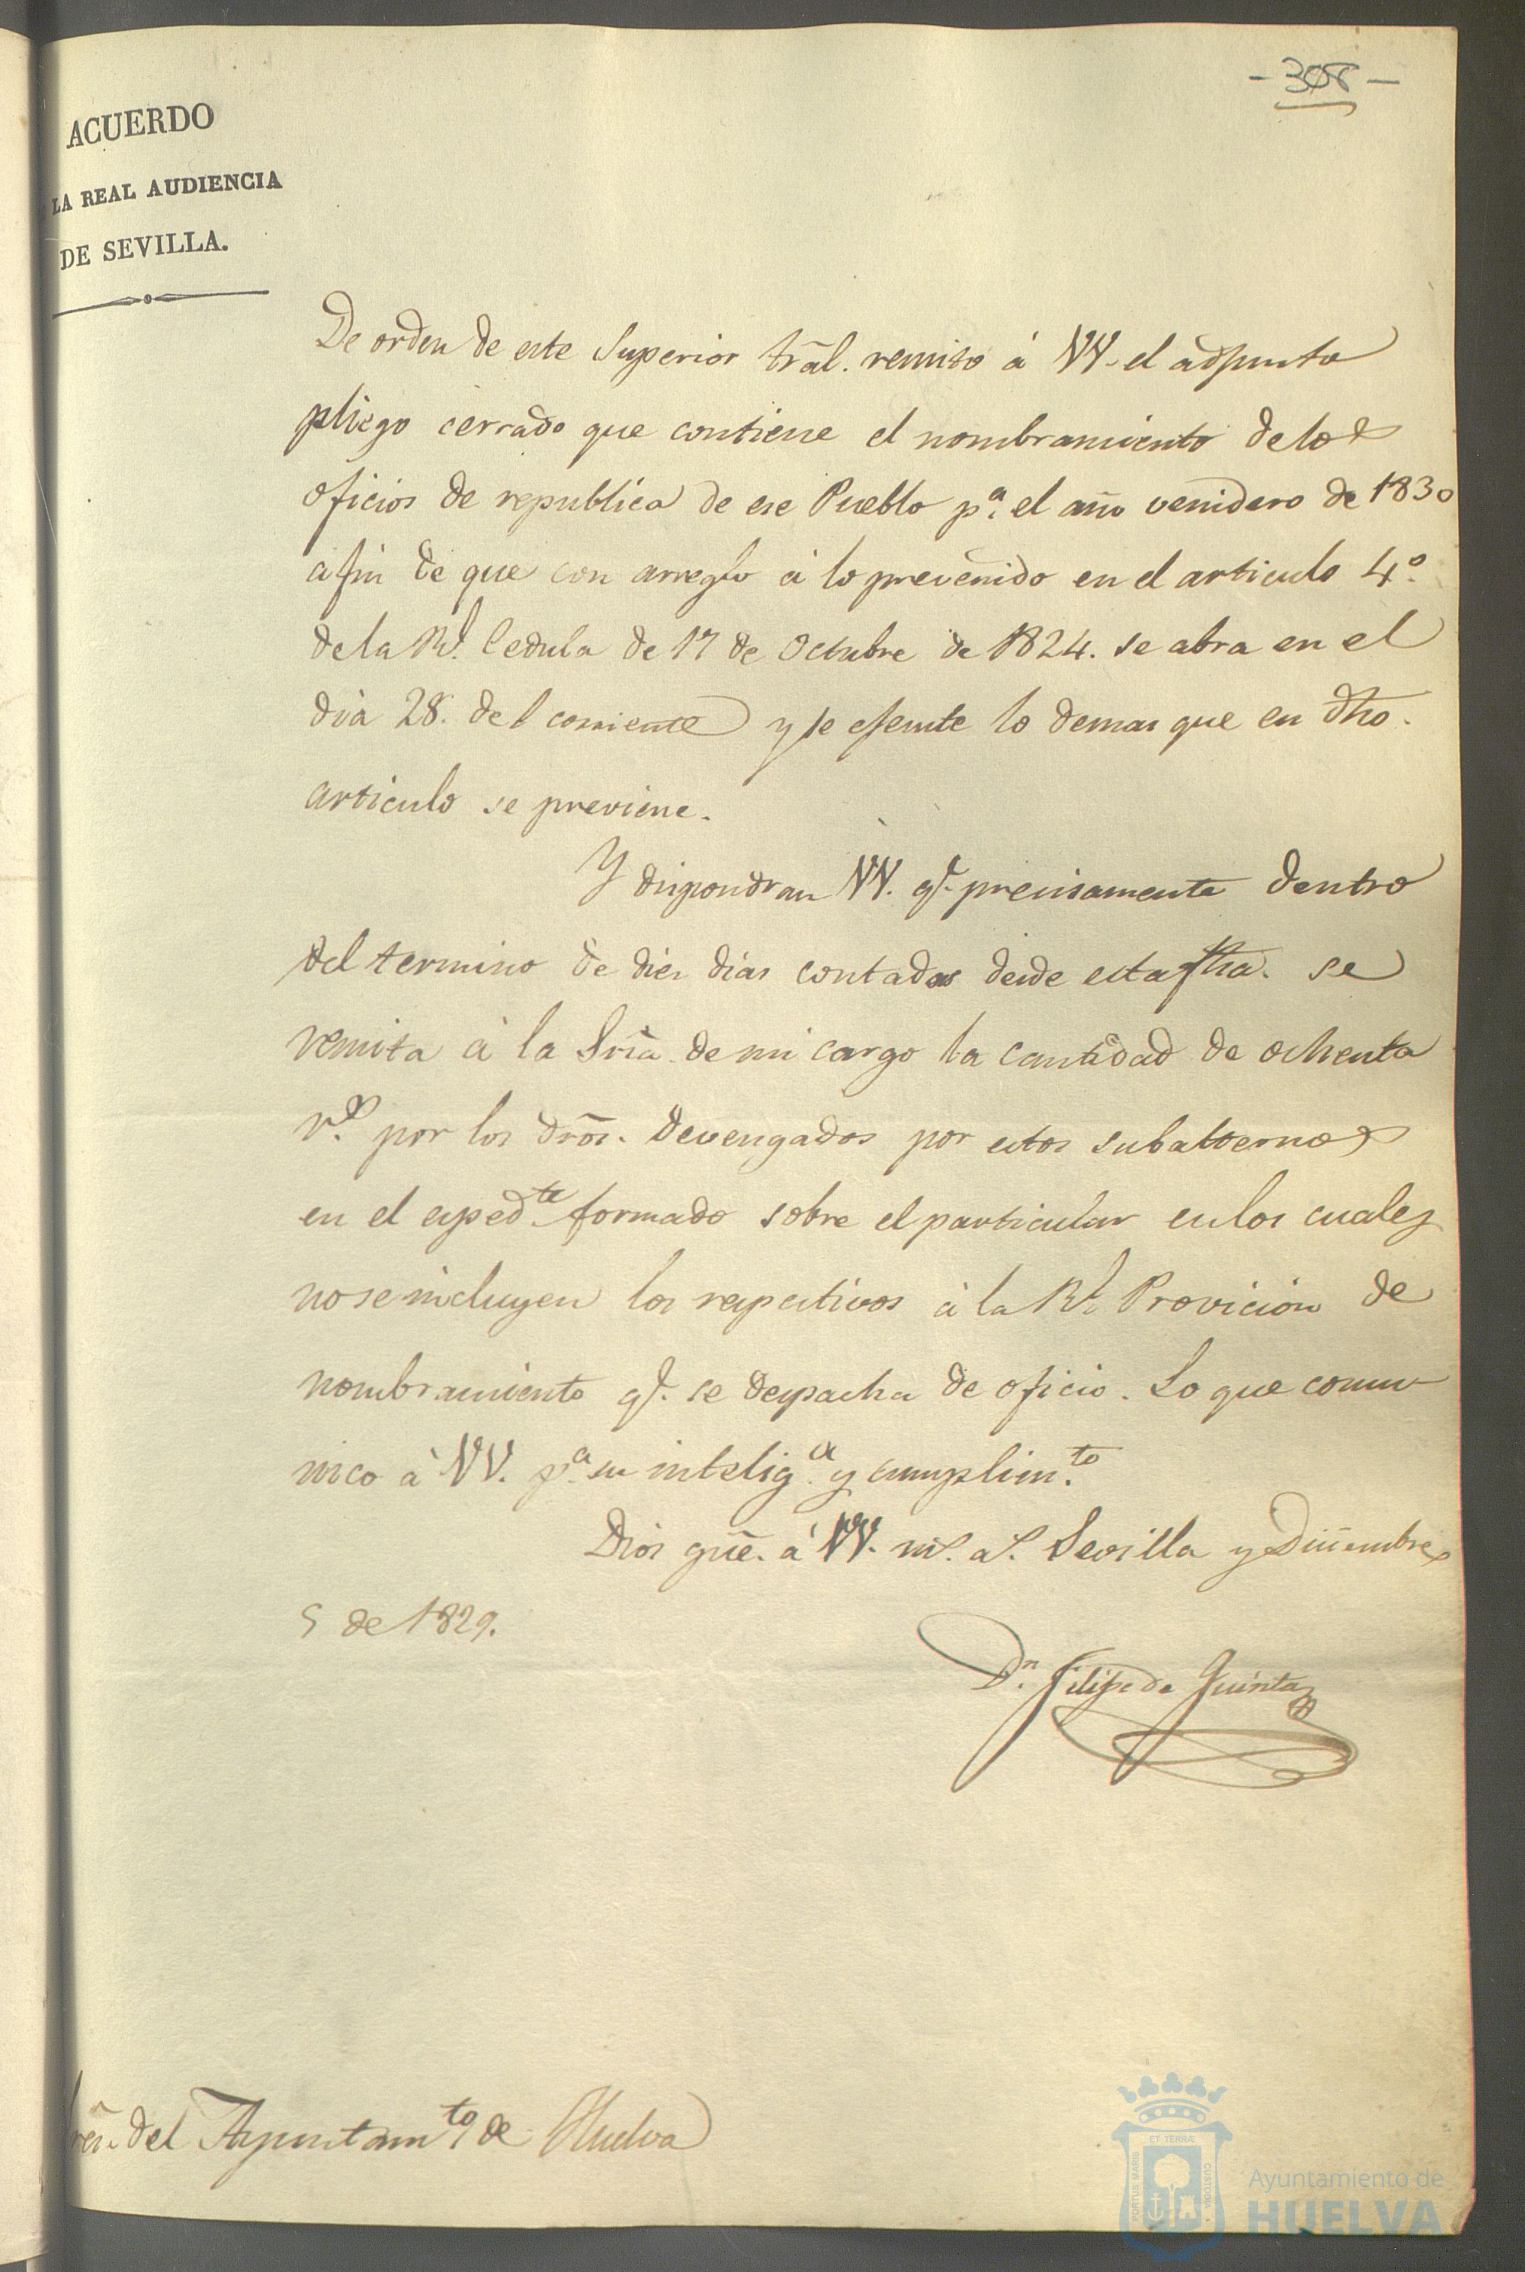 - 308 -
ACUERDO
LA REAL AUDIENCIA
DE SEVILLA.
De orden de este Superior trãl. remito á VV. el adjunto
pliego cerrado que contiene el nombramiento de los
oficios de republica de ese Pueblo p.ª el año venidero de 1830
afin de que con arreglo á lo prevenido en el articulo 4.º
de la Rl. Cedula de 17 de Octubre de 1824. se abra en el
dia 28. del corriente y se ejecute lo demas que en dho.
articulo se previene.
Y dispondran VV. q.e precisamente dentro
del termino de diez dias contados desde esta fha. se
remita á la Sria. de mi cargo la cantidad de ochenta
r.s por los dros. devengados por estos subalternos
en el exped.te formado sobre el particular en los cuales
no se incluyen los respectivos á la Rl. Provicion de
nombramiento q.e se despacha de oficio. Lo que comu-
nico á VV. p.ª su intelig.ª y cumplim.to
Dios gũe. á VV. m.s a.s Sevilla y Diciembre
5 de 1829.
D.n Filipe de Quinta
res. del Ayuntam.to de Huelva
PORTUS MARIS
ET TERRÆ
CUSTODIA
Ayuntamiento de
HUELVA